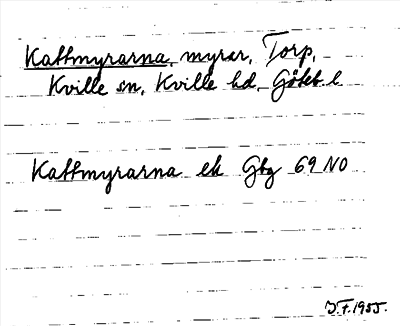 Kattmyrarna, myrar, Torp,
Kville sn, Kville hd, Göteb l
Kattmyrarna ek Gbg 69 NO
J.F. 1955.